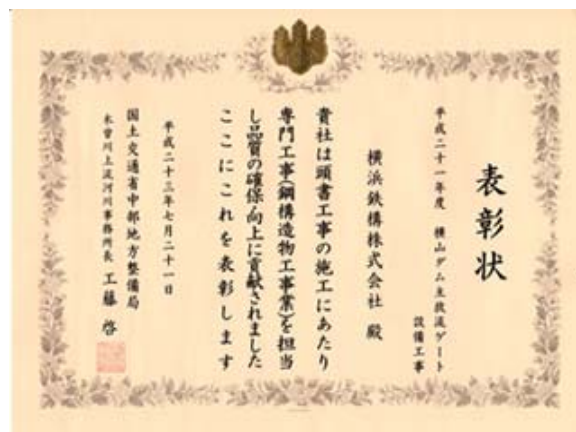 表彰状
平成二十一年度 横山ダム主放流ゲート
設備工事
横浜鉄構株式会社 殿
貴社は頭書工事の施工にあたり
専門工事(鋼構造物工事業)を担当
し品質の確保、向上に貢献されました
ここにこれを表彰します
平成二十三年七月二十一日
国土交通省中部地方整備局
木曽川上流河川事務所長 工藤 啓